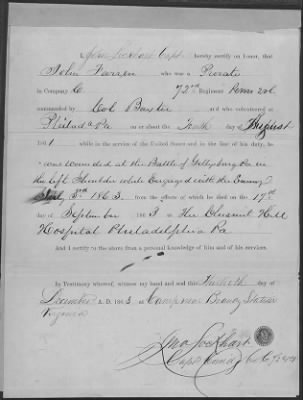 I, John Lockhart Capt hereby certify on honor, that
John Farren who was a Private
in Company C 72nd Regiment Penn Vol
commanded by Col Baxter and who volunteered at
Philad a Pa on or about the Tenth day of August
1861 while in the service of the United States and in the line of his duty, he
was wounded at the Battle of Gettysburg Pa in
the left Shoulder while Engaged with the Enemy
July 3rd 1863. from the effects of which he died on the 17th
day of September 1863 in the Chesnut Hill
Hospital Philadelphia Pa
And I certify to the above from a personal knowledge of him and of his services.
In Testimony whereof, witness my hand and seal this day of
December A. D. 1863 at Camp near Brandy Station
Virginia
Jno Lockhart
Capt Comdg Co C 72